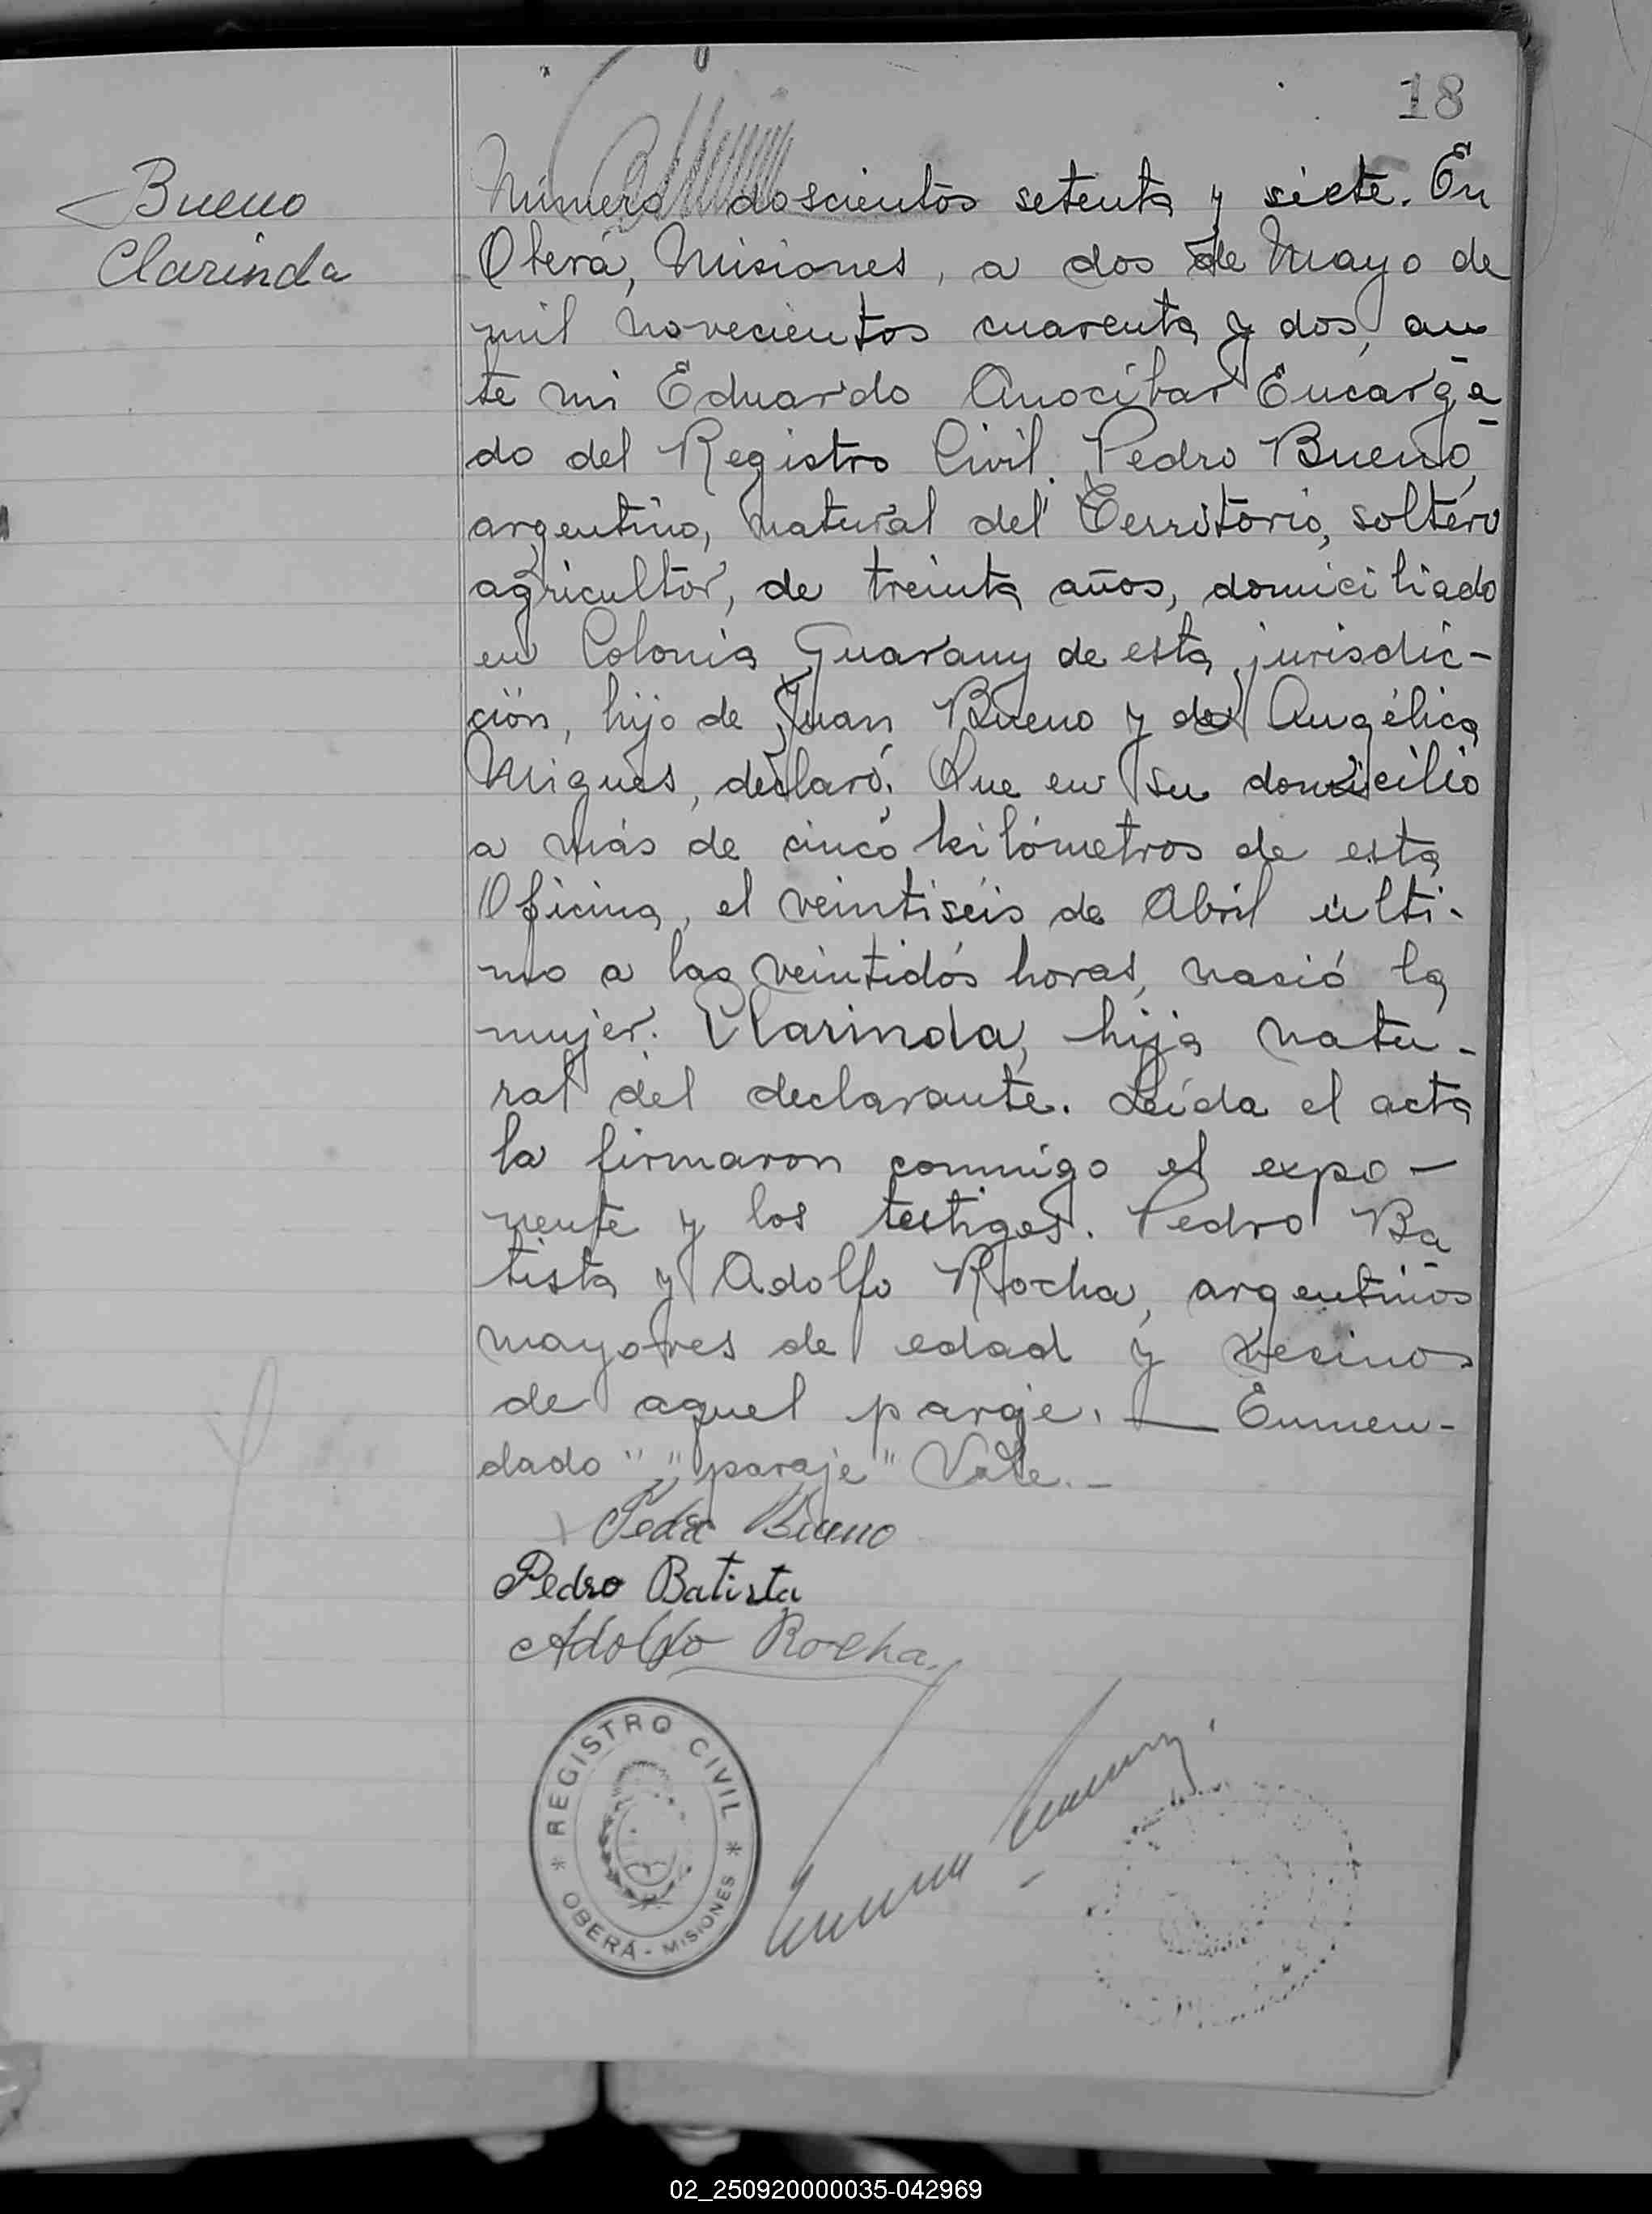 18
Bueno
Clarinda
Número doscientos setenta y siete. En
Oberá, Misiones, a dos de Mayo de
mil novecientos cuarenta y dos, an
te mi Eduardo Anocibar Encarga
do del Registro Civil. Pedro Bueno,
argentino, natural del Territorio, soltero
agricultor, de treinta años, domiciliado
en Colonia Guarany de esta jurisdic-
ción, hijo de Juan Bueno y de Angélica
Migues, declaró: Que en su domicilio
a más de cinco kilómetros de esta
Oficina, el veintiseis de Abril últi-
mo a las veintidós horas, nació la
mujer: Clarinda, hija natu-
ral del declarante. Leída el acta
la firmaron conmigo el expo-
nente y los testigos. Pedro Ba
tista y Adolfo Rocha, argentinos
mayores de edad y vecinos
de aquel parge. — Enmen-
dado " " paraje " Vale.-
Pedro Bueno
Pedro Batista
Adolfo Rocha
REGISTRO CIVIL
* OBERÁ - MISIONES *
02_250920000035-042969